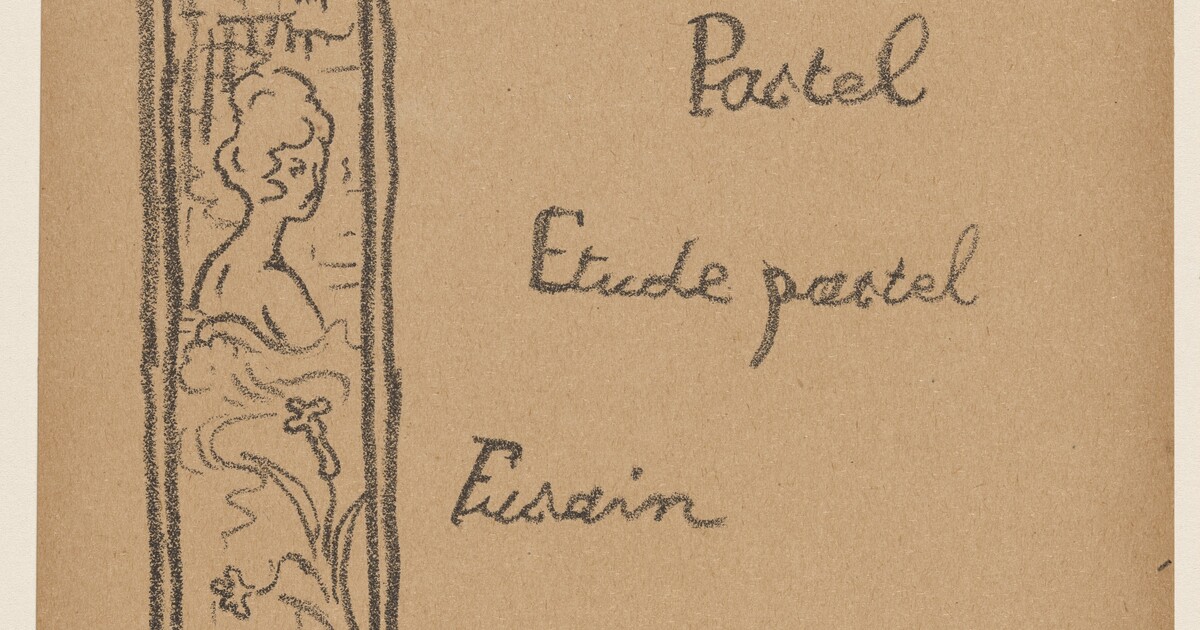 Pastel
Etude pastel
Fusain